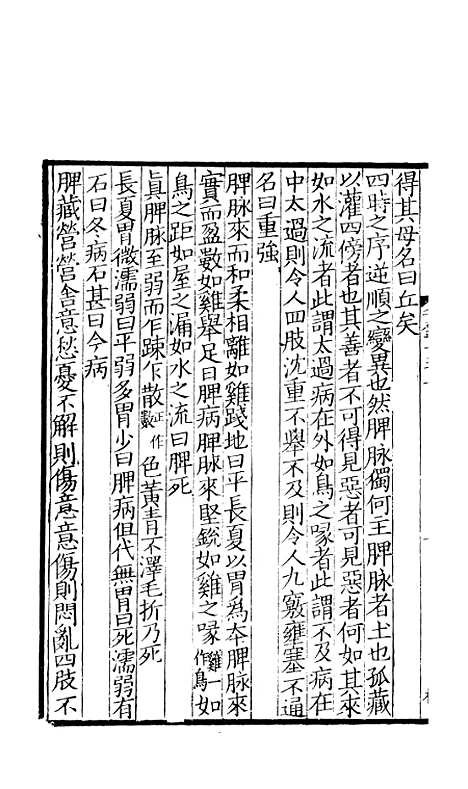 得其母名曰丘矣
四時之序逆順之變異也然脾脉獨何王脾脉者土也孤藏
以灌四傍者也其善者不可得見惡者可見惡者何如其來
如水之流者此謂太過病在外如鳥之喙者此謂不及病在
中太過則令人四肢沈重不舉不及則令人九竅壅塞不通
名曰重強
脾脉來而和柔相離如雞踐地曰平長夏以胃為本脾脉來
實而盈數如雞舉足曰脾病脾脉來堅銳如雞之喙雞一作鳥如
鳥之距如屋之漏如水之流曰脾死
真脾脉至弱而乍踈乍散正作數色黃青不澤毛折乃死
長夏胃微濡弱曰平弱多胃少曰脾病但代無胃曰死濡弱有
石曰冬病石甚曰今病
脾藏營營舍意愁憂不解則傷意意傷則悶亂四肢不